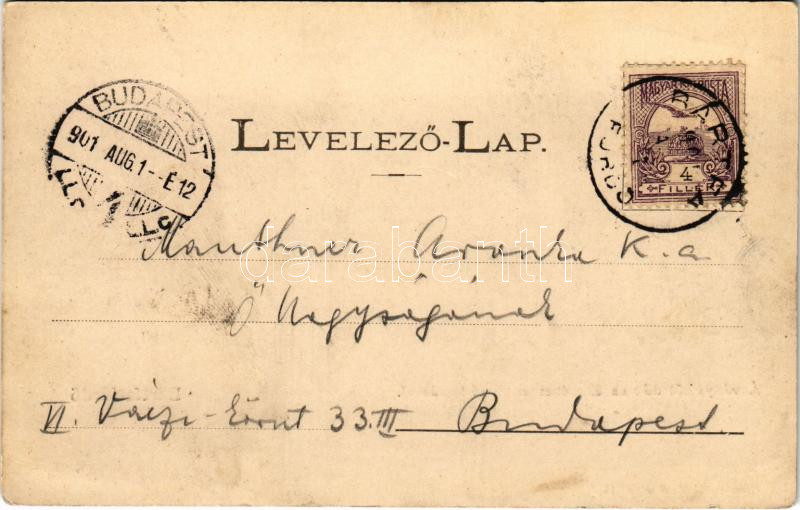 BUDAPEST
901 AUG. 1 - E 12
LEVELEZŐ-LAP.
MAGYAR KIR. POSTA
4
FILLÉR
BÁRTFA
FÜRDŐ
Mauthner Aranka K.a.
Ő Nagyságának
VI. Váczi-körut 33. III
Budapest.
darabanth